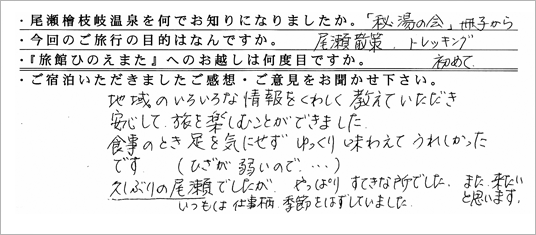 ・尾瀬檜枝岐温泉を何でお知りになりましたか。「秘湯の会」冊子から
・今回のご旅行の目的はなんですか。 尾瀬散策、トレッキング
・『旅館ひのえまた』へのお越しは何度目ですか。 初めて
・ご宿泊いただきましたご感想・ご意見をお聞かせ下さい。
地域のいろいろな情報をくわしく教えていただき
安心して旅を楽しむことができました
食事のとき足を気にせずゆっくり味わえてうれしかった
です (ひざが弱いので…)
久しぶりの尾瀬でしたが、やっぱりすてきな所でした。また来たい
と思います。
いつもは仕事柄季節をはずしていました。